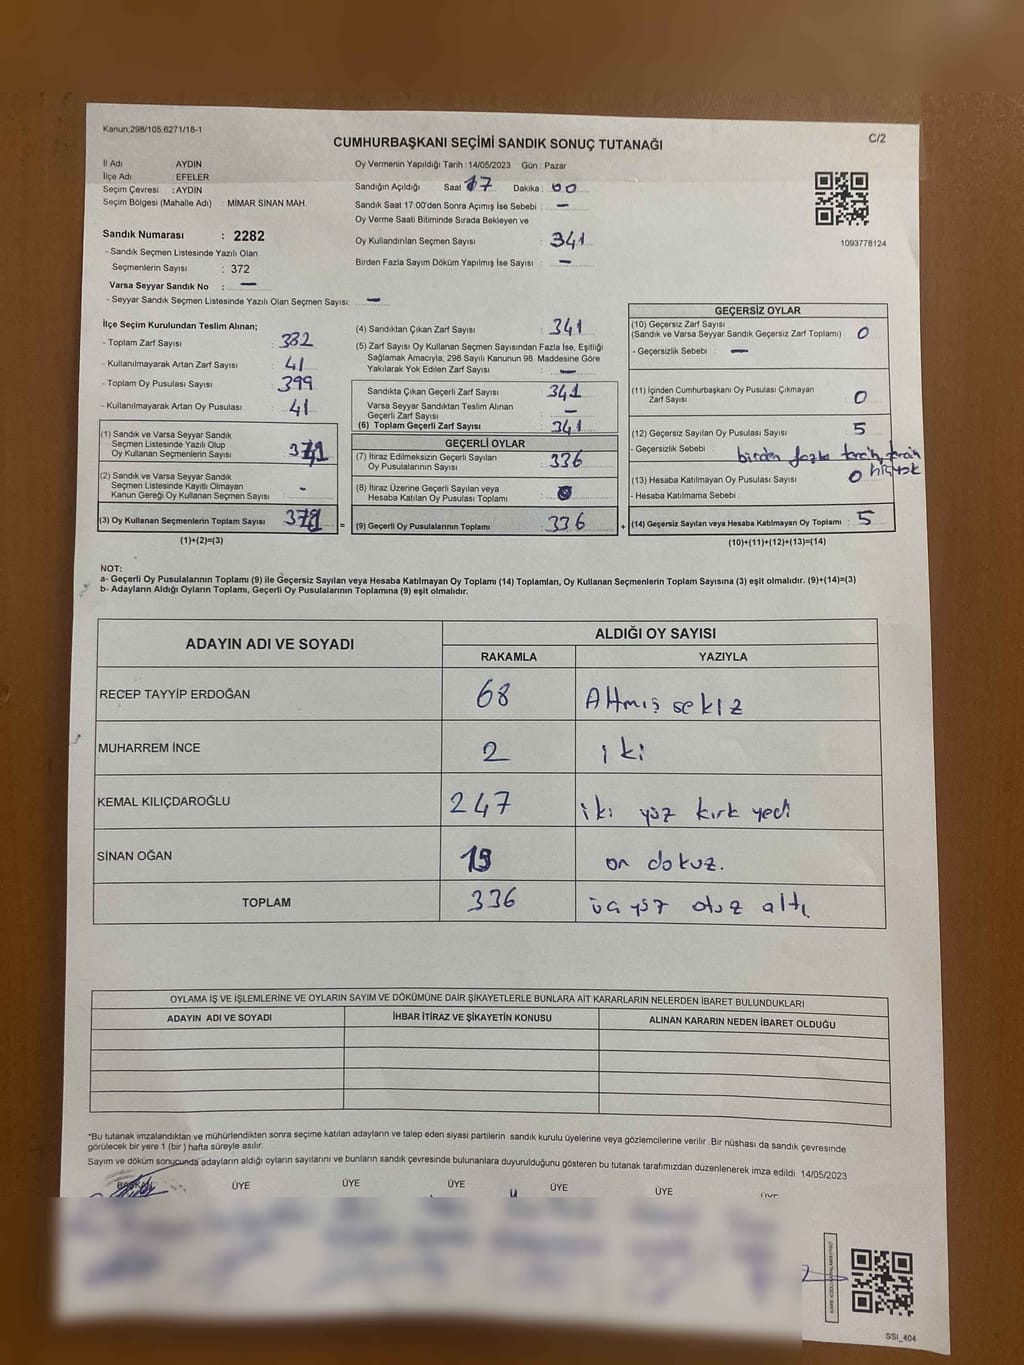 Kanun:298/105,6271/18-1
C/2
CUMHURBAŞKANI SEÇİMİ SANDIK SONUÇ TUTANAĞI
İl Adı : AYDIN
İlçe Adı : EFELER
Seçim Çevresi : AYDIN
Seçim Bölgesi (Mahalle Adı) : MİMAR SİNAN MAH.
Sandık Numarası : 2282
- Sandık Seçmen Listesinde Yazılı Olan
Seçmenlerin Sayısı : 372
Varsa Seyyar Sandık No : —
- Seyyar Sandık Seçmen Listesinde Yazılı Olan Seçmen Sayısı: —
Oy Vermenin Yapıldığı Tarih : 14/05/2023 Gün : Pazar
Sandığın Açıldığı Saat 17 Dakika : 00
Sandık Saat 17:00'den Sonra Açımış İse Sebebi : —
Oy Verme Saati Bitiminde Sırada Bekleyen ve
Oy Kullandırılan Seçmen Sayısı : 341
Birden Fazla Sayım Döküm Yapılmış İse Sayısı : —
1093778124
İlçe Seçim Kurulundan Teslim Alınan;
- Toplam Zarf Sayısı : 382
- Kullanılmayarak Artan Zarf Sayısı : 41
- Toplam Oy Pusulası Sayısı : 399
- Kullanılmayarak Artan Oy Pusulası : 41
(1) Sandık ve Varsa Seyyar Sandık
Seçmen Listesinde Yazılı Olup
Oy Kullanan Seçmenlerin Sayısı :
(2) Sandık ve Varsa Seyyar Sandık
Seçmen Listesinde Kayıtlı Olmayan
Kanun Gereği Oy Kullanan Seçmen Sayısı : -
(3) Oy Kullanan Seçmenlerin Toplam Sayısı :
=
(1)+(2)=(3)
(4) Sandıktan Çıkan Zarf Sayısı : 341
(5) Zarf Sayısı Oy Kullanan Seçmen Sayısından Fazla İse, Eşitliği
Sağlamak Amacıyla; 298 Sayılı Kanunun 98. Maddesine Göre
Yakılarak Yok Edilen Zarf Sayısı : —
Sandıkta Çıkan Geçerli Zarf Sayısı : 341
Varsa Seyyar Sandıktan Teslim Alınan
Geçerli Zarf Sayısı : —
(6) Toplam Geçerli Zarf Sayısı : 341
GEÇERLİ OYLAR
(7) İtiraz Edilmeksizin Geçerli Sayılan
Oy Pusulalarının Sayısı : 336
(8) İtiraz Üzerine Geçerli Sayılan veya
Hesaba Katılan Oy Pusulası Toplamı : 0
(9) Geçerli Oy Pusulalarının Toplamı : 336
+
GEÇERSİZ OYLAR
(10) Geçersiz Zarf Sayısı
(Sandık ve Varsa Seyyar Sandık Geçersiz Zarf Toplamı) : 0
- Geçersizlik Sebebi : —
(11) İçinden Cumhurbaşkanı Oy Pusulası Çıkmayan
Zarf Sayısı : 0
(12) Geçersiz Sayılan Oy Pusulası Sayısı : 5
- Geçersizlik Sebebi : birden fazla tercih, tercih
hiç yok
(13) Hesaba Katılmayan Oy Pusulası Sayısı : 0
- Hesaba Katılmama Sebebi :
(14) Geçersiz Sayılan veya Hesaba Katılmayan Oy Toplamı : 5
(10)+(11)+(12)+(13)=(14)
NOT:
a- Geçerli Oy Pusulalarının Toplamı (9) ile Geçersiz Sayılan veya Hesaba Katılmayan Oy Toplamı (14) Toplamları, Oy Kullanan Seçmenlerin Toplam Sayısına (3) eşit olmalıdır. (9)+(14)=(3)
b- Adayların Aldığı Oyların Toplamı, Geçerli Oy Pusulalarının Toplamına (9) eşit olmalıdır.
ADAYIN ADI VE SOYADI
ALDIĞI OY SAYISI
RAKAMLA YAZIYLA
RECEP TAYYİP ERDOĞAN 68 Altmış sekiz
MUHARREM İNCE 2 iki
KEMAL KILIÇDAROĞLU 247 iki yüz kırk yedi
SİNAN OĞAN 19 on dokuz.
TOPLAM 336 üç yüz otuz altı
OYLAMA İŞ VE İŞLEMLERİNE VE OYLARIN SAYIM VE DÖKÜMÜNE DAİR ŞİKAYETLERLE BUNLARA AİT KARARLARIN NELERDEN İBARET BULUNDUKLARI
ADAYIN ADI VE SOYADI İHBAR İTİRAZ VE ŞİKAYETİN KONUSU ALINAN KARARIN NEDEN İBARET OLDUĞU
*Bu tutanak imzalandıktan ve mühürlendikten sonra seçime katılan adayların ve talep eden siyasi partilerin sandık kurulu üyelerine veya gözlemcilerine verilir .Bir nüshası da sandık çevresinde
görülecek bir yere 1 (bir ) hafta süreyle asılır.
Sayım ve döküm sonucunda adayların aldığı oyların sayılarını ve bunların sandık çevresinde bulunanlara duyurulduğunu gösteren bu tutanak tarafımızdan düzenlenerek imza edildi. 14/05/2023
BAŞKAN ÜYE ÜYE ÜYE ÜYE ÜYE
SSI_404